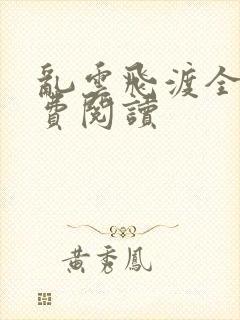 亂雲飛渡全
費閱讀
黃秀鳳